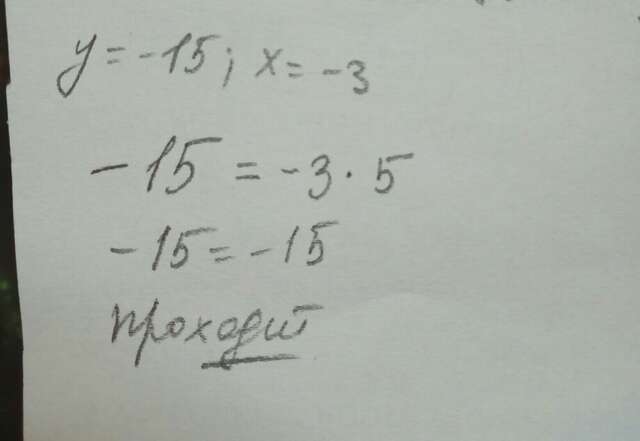 y = -15; x = -3
-15 = -3 · 5
-15 = -15
проходит